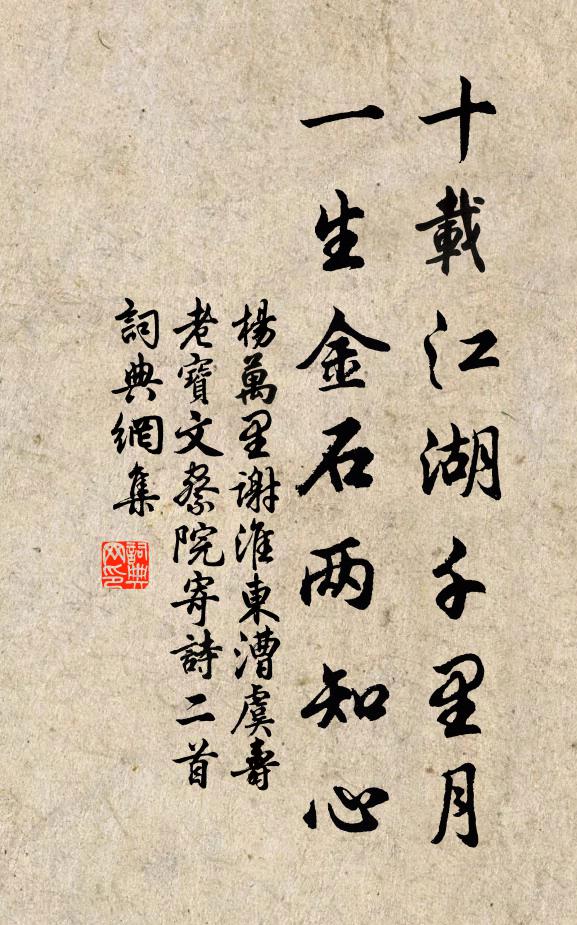 十載江湖千里月
一生金石两知心
楊萬里謝淮東漕虞壽
老寶文察院寄詩二首
詞典網集
詞典
网印